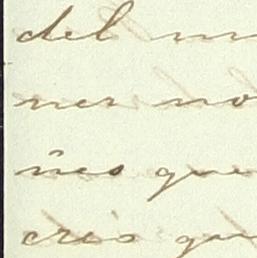 del m
ner no
ñes que
creo que